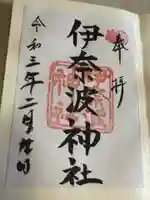 奉拝
伊奈波神社
令和三年二月